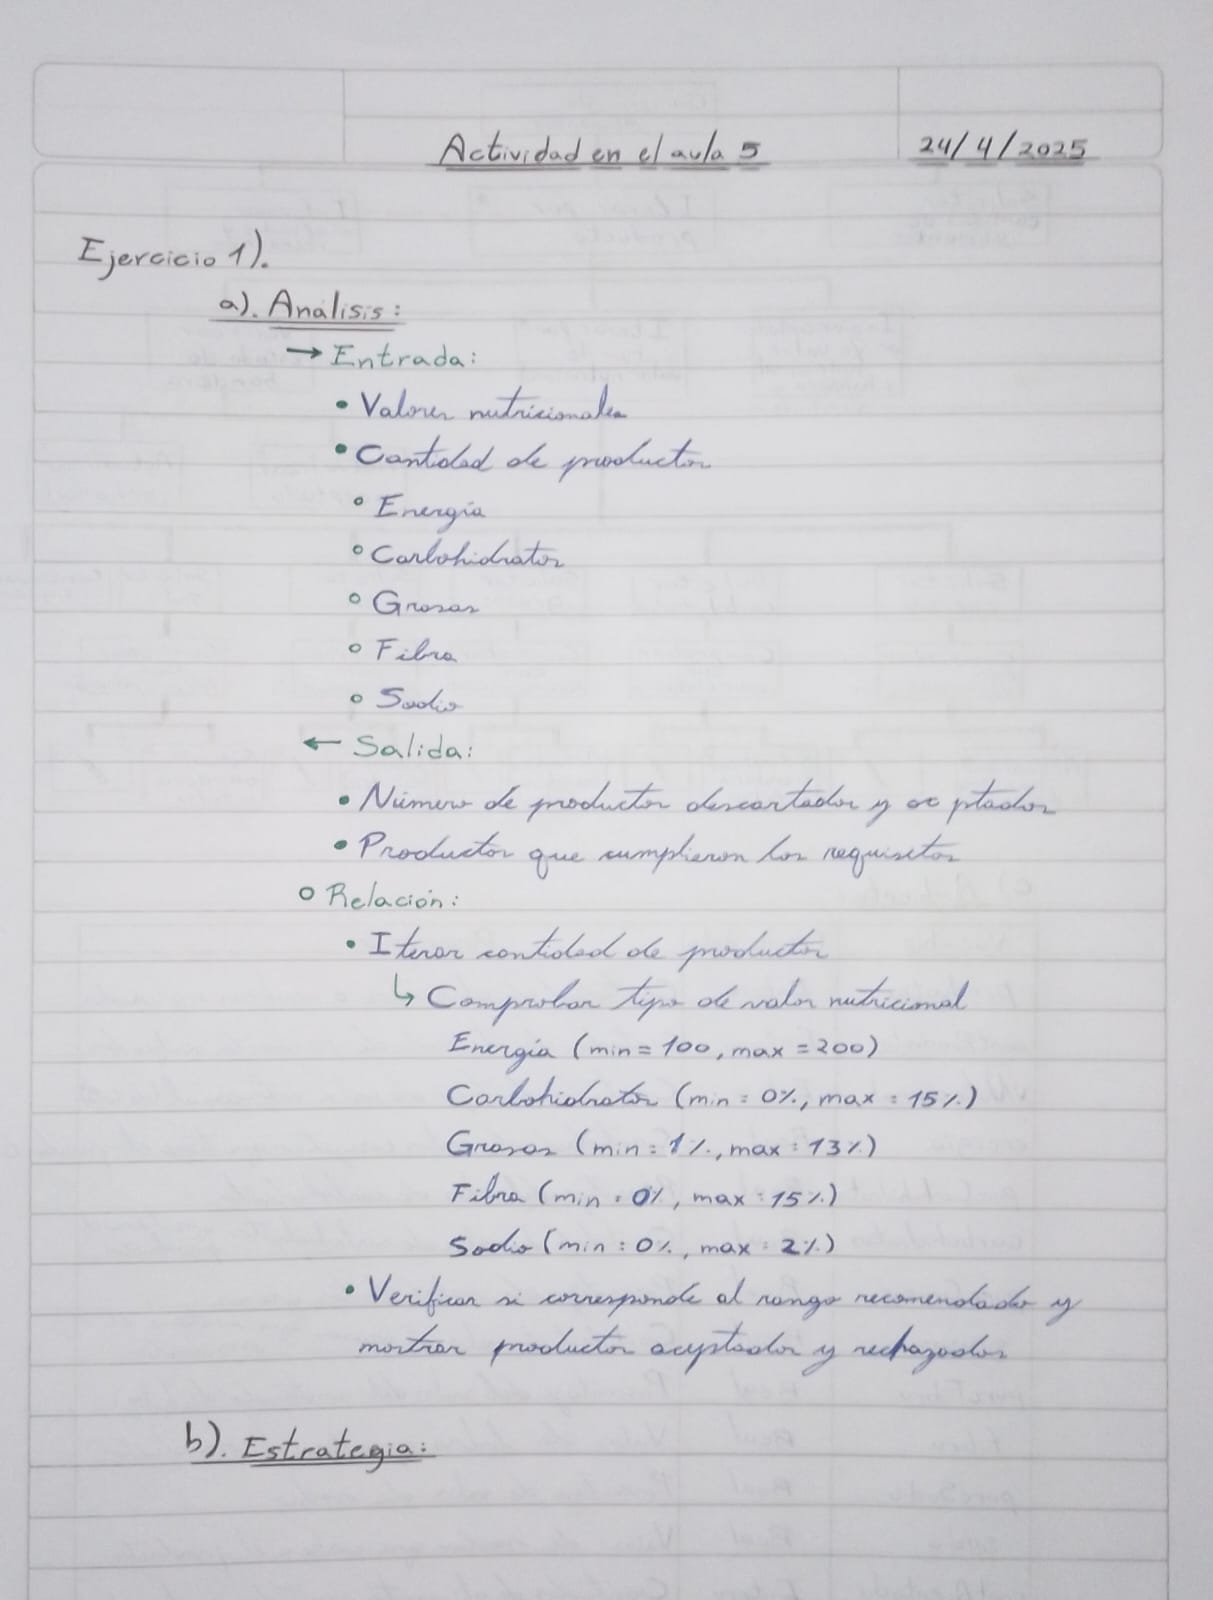 Actividad en el aula 5
24/4/2025
Ejercicio 1).
a). Análisis:
→ Entrada:
• Valores nutricionales
• Cantidad de productos
° Energía
° Carbohidratos
° Grasas
° Fibra
° Sodio
← Salida:
• Número de productos descartados y ac ptados
• Productos que cumplieron los requisitos
° Relación:
• Iterar cantidad de productos
↳ Comprobar tipo de valor nutricional
Energía (min = 100, max = 200)
Carbohidratos (min : 0%, max : 15%)
Grasas (min : 1%, max : 13%)
Fibra (min : 0%, max : 15%)
Sodio (min : 0%, max : 2%)
• Verificar si corresponde al rango recomendado y
mostrar productos aceptados y rechazados
b). Estrategia: